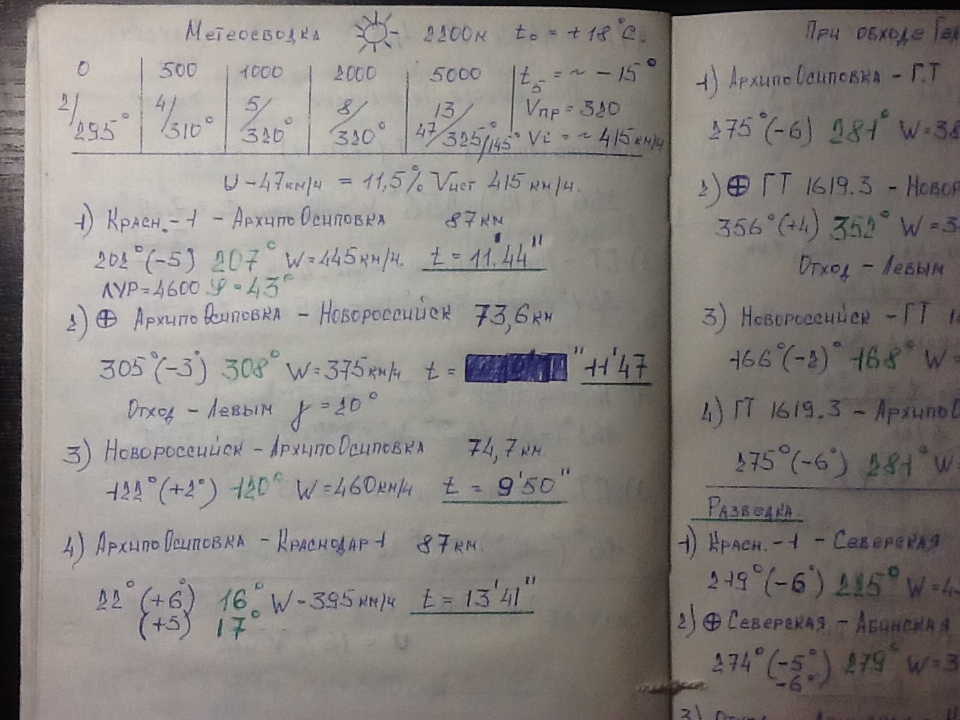 Метеосводка 2200м t₀ = +18°C.
0 500 1000 2000 5000 t₅ = ~ -15°
2/295° 4/310° 5/320° 8/320° 13 47/325°/145° Vпр = 320
Vi = ~ 415км/ч
U - 47км/ч = 11,5% Vист 415 км/ч.
1) Красн.-1 - АрхипоОсиповка 87км
202°(-5) 207° W = 445км/ч. t = 11'44"
ЛУР=4600 φ = 43°
2) ⊕ АрхипоОсиповка - Новороссийск 73,6км
305°(-3°) 308° W = 375км/ч t = " 11'47
Отход - Левым γ = 20°
3) Новороссийск - АрхипоОсиповка 74,7км.
122°(+2°) 120° W = 460км/ч t = 9'50"
4) АрхипоОсиповка - Краснодар 1 87км.
22° (+6°) 16° W - 395км/ч t = 13'41"
(+5) 17°
При обходе
1) АрхипоОсиповка - Г.Т
275°(-6) 281° W = 38
2) ⊕ ГТ 1619.3 - Новор
356°(+4) 352° W = 3
Отход - Левым
3) Новороссийск - ГТ
166°(-2)° 168° W =
4) ГТ 1619.3 - Архипо
275°(-6°) 281° W
Разведка.
1) Красн.-1 - Северская
219°(-6°) 225° W = 4
2) ⊕ Северская - Абинская
274°(-5° 279° W = 3
-6°)
3)